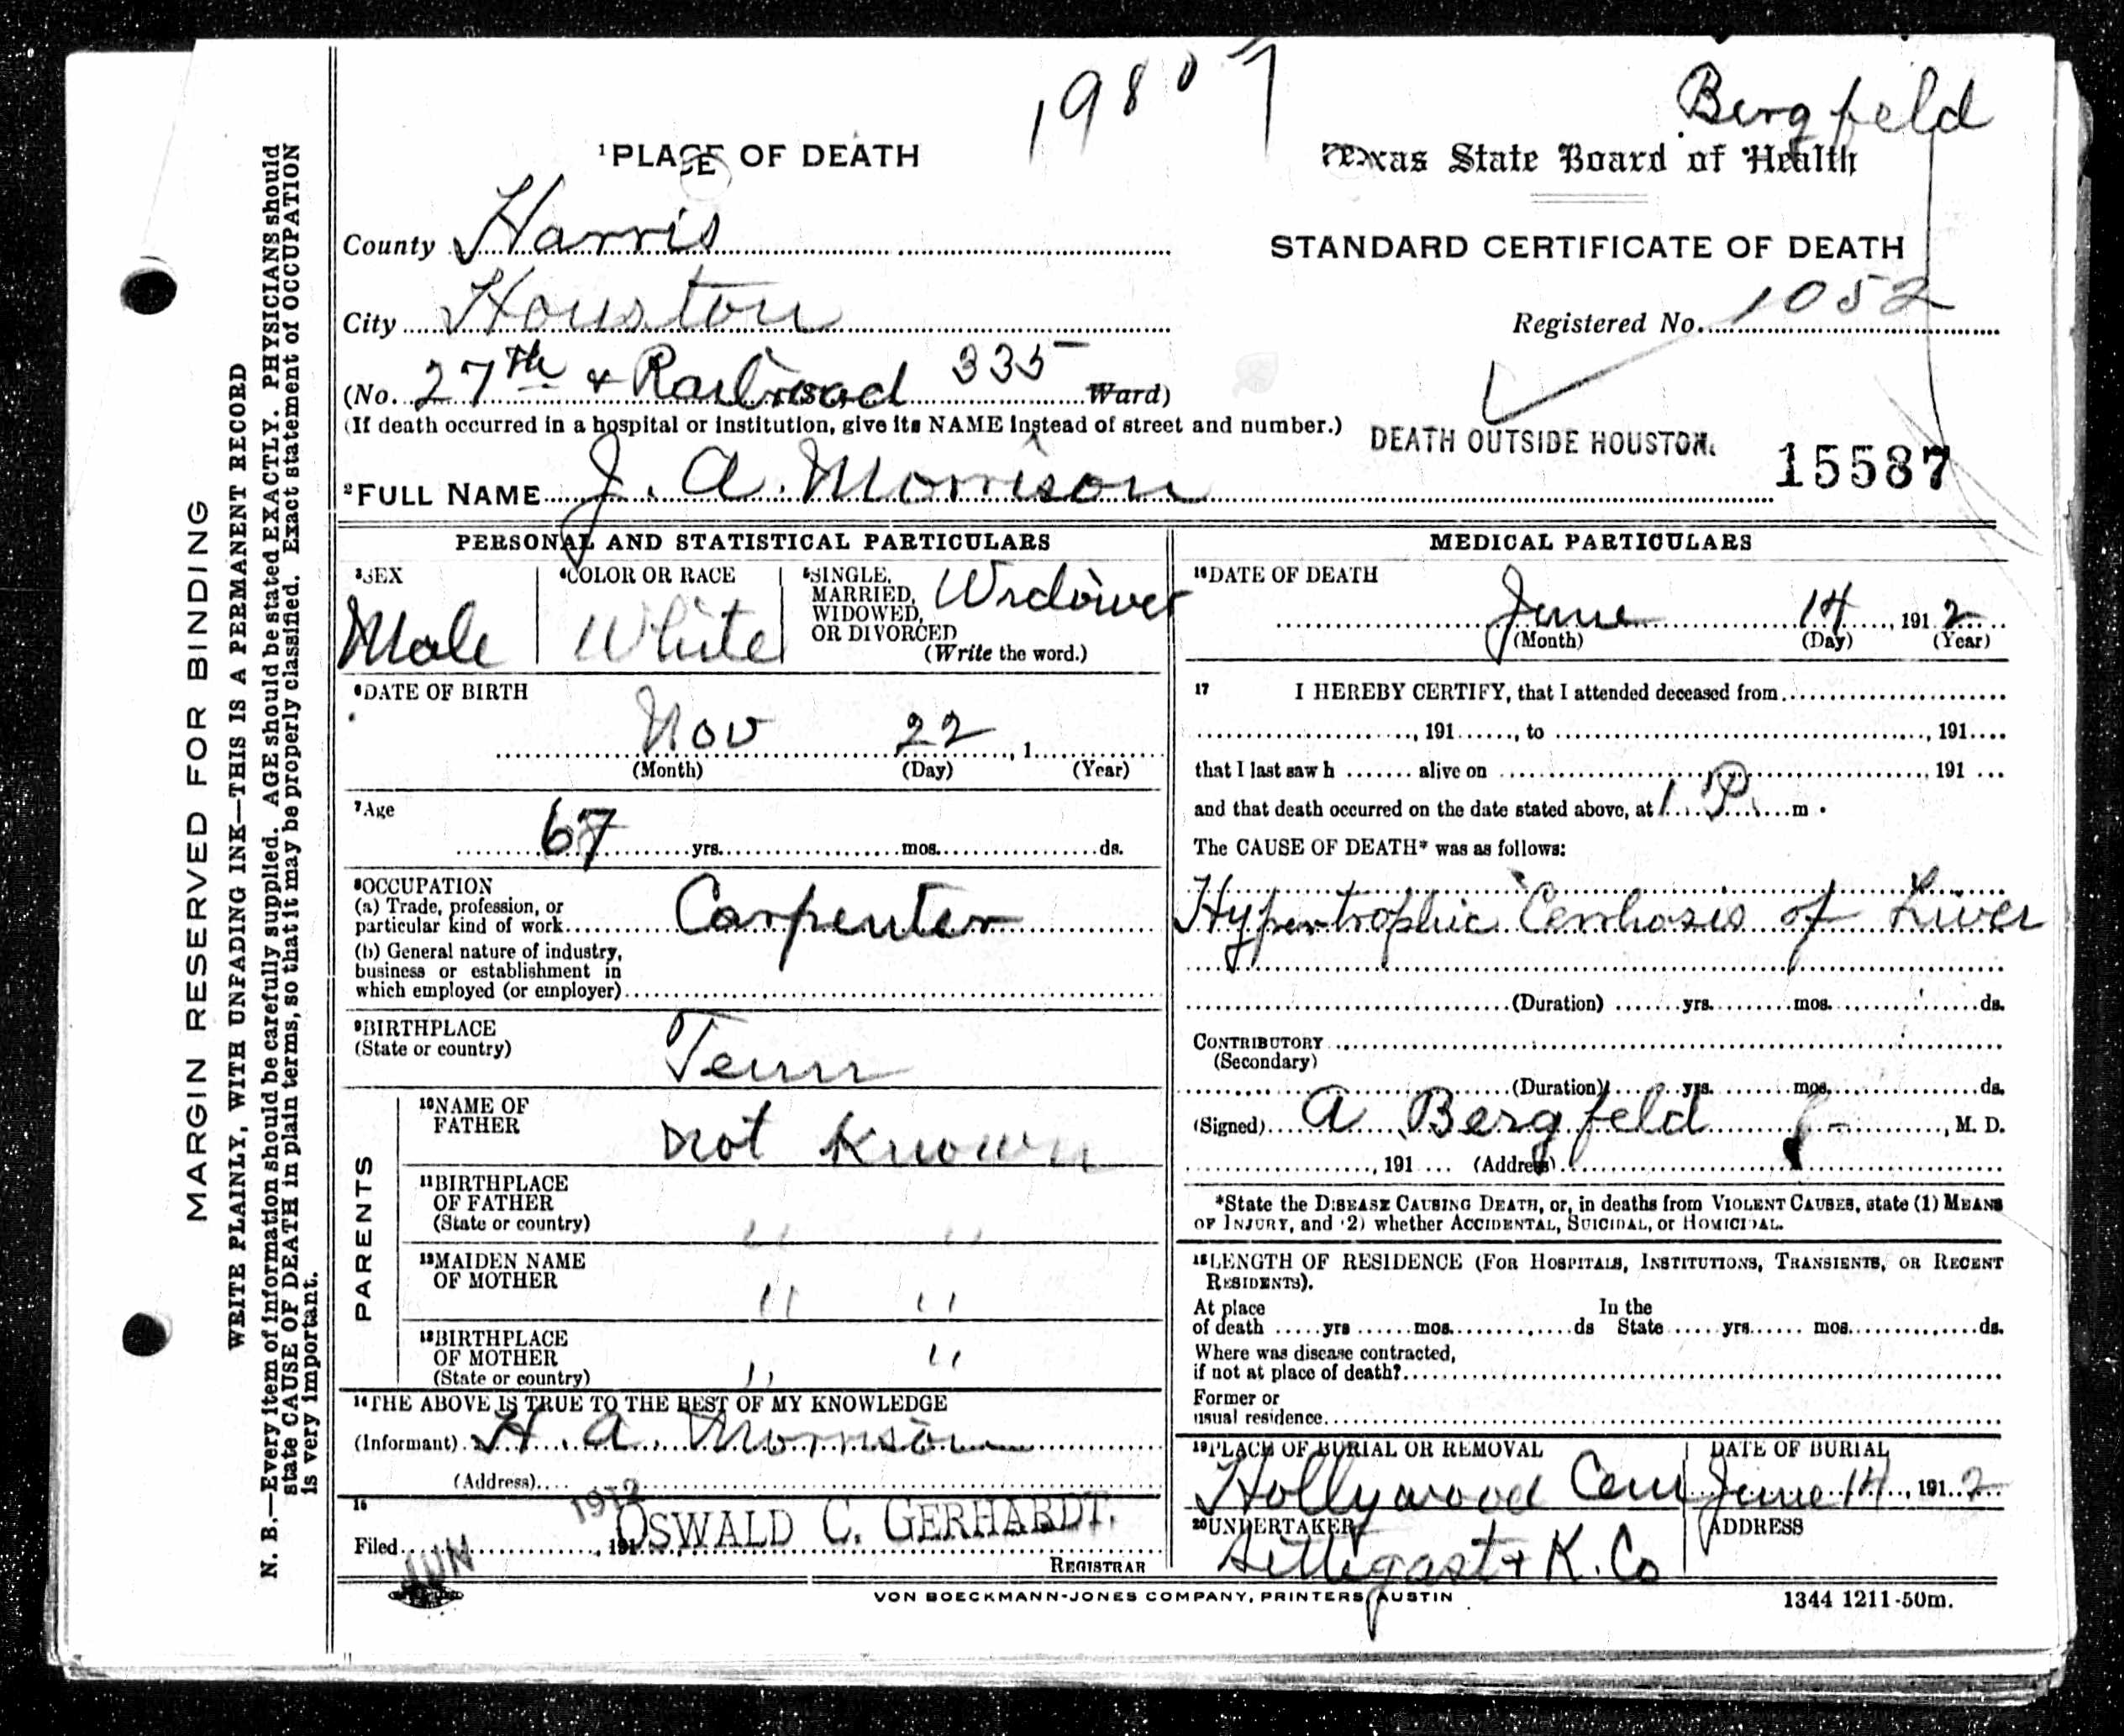 19807
Bergfeld
1 PLACE OF DEATH
Texas State Board of Health
STANDARD CERTIFICATE OF DEATH
County Harris
City Houston
Registered No. 1052
(No. 27th & Railroad 335 Ward)
(If death occurred in a hospital or institution, give its NAME instead of street and number.)
DEATH OUTSIDE HOUSTON.
15587
2 FULL NAME J. A. Morrison
PERSONAL AND STATISTICAL PARTICULARS
3 SEX
Male
4 COLOR OR RACE
White
5 SINGLE,
MARRIED,
WIDOWED,
OR DIVORCED
(Write the word.)
Widower
6 DATE OF BIRTH
Nov 22, 1
(Month) (Day) (Year)
7 Age
67 yrs. mos. ds.
8 OCCUPATION
(a) Trade, profession, or
particular kind of work Carpenter
(b) General nature of industry,
business or establishment in
which employed (or employer)
9 BIRTHPLACE
(State or country)
Tenn
PARENTS
10 NAME OF
FATHER
not known
11 BIRTHPLACE
OF FATHER
(State or country)
" "
12 MAIDEN NAME
OF MOTHER
" "
13 BIRTHPLACE
OF MOTHER
(State or country)
" "
14 THE ABOVE IS TRUE TO THE BEST OF MY KNOWLEDGE
(Informant) H. A. Morrison
(Address)
15
Filed JUN 1912, 191 OSWALD C. GERHARDT.
REGISTRAR
MEDICAL PARTICULARS
16 DATE OF DEATH
June 14, 1912
(Month) (Day) (Year)
17 I HEREBY CERTIFY, that I attended deceased from
, 191 , to , 191
that I last saw h alive on 191
and that death occurred on the date stated above, at 1 P. m.
The CAUSE OF DEATH* was as follows:
Hypertrophic Cirrhosis of Liver
(Duration) yrs. mos. ds.
CONTRIBUTORY
(Secondary)
(Duration) yrs. mos. ds.
(Signed) A Bergfeld, M. D.
, 191 (Address)
*State the DISEASE CAUSING DEATH, or, in deaths from VIOLENT CAUSES, state (1) MEANS
OF INJURY, and (2) whether ACCIDENTAL, SUICIDAL, or HOMICIDAL.
18 LENGTH OF RESIDENCE (FOR HOSPITALS, INSTITUTIONS, TRANSIENTS, OR RECENT
RESIDENTS).
At place In the
of death yrs mos. ds State yrs. mos. ds.
Where was disease contracted,
if not at place of death?
Former or
usual residence
19 PLACE OF BURIAL OR REMOVAL
Hollywood Cem
DATE OF BURIAL
June 14, 1912
20 UNDERTAKER
Settegast & K. Co
ADDRESS
VON BOECKMANN-JONES COMPANY, PRINTERS, AUSTIN
1344 1211-50m.
MARGIN RESERVED FOR BINDING
WRITE PLAINLY, WITH UNFADING INK—THIS IS A PERMANENT RECORD
N. B.—Every item of information should be carefully supplied. AGE should be stated EXACTLY. PHYSICIANS should
state CAUSE OF DEATH in plain terms, so that it may be properly classified. Exact statement of OCCUPATION
is very important.